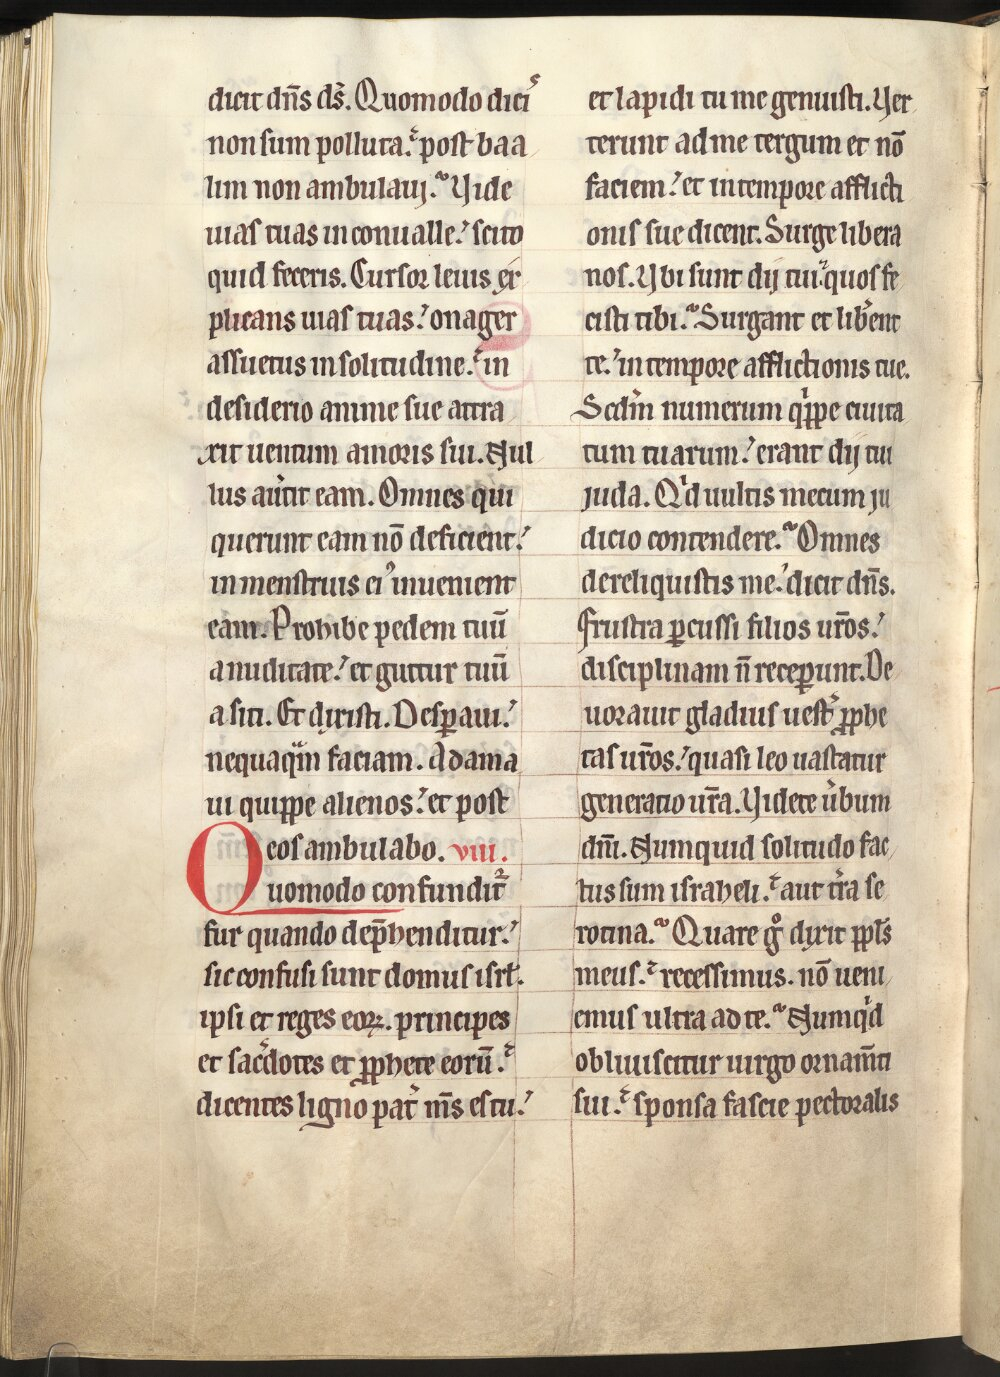 dicit dn̄s ds̄. Quomodo dicis
non sum polluta. post baa
lim non ambulaui. Vide
uias tuas in conualle. scito
quid feceris. Cursor leuis ex
plicans uias tuas. onager
assuetus in solitudine. in
desiderio anime sue attra
xit uentum amoris sui. Nul
lus au̾tit eam. Omnes qui
querunt eam nō deficient.
in menstruis ei᷒ inuenient
eam. Prohibe pedem tuū
a nuditate. et guttur tuū
a siti. Et dixisti. Desꝑaui.
nequaqͣm faciam. Adama
ui quippe alienos. et post
eos ambulabo. viii.
Quomodo confundit᷑
fur quando dep̄henditur.
sic confusi sunt domus isrł.
ipsi et reges eoꝝ. principes
et sac̾dotes et ꝓphete eorū.
dicentes ligno pat̾ m̄s es tu.
et lapidi tu me genuisti. Ver
terunt ad me tergum et nō
faciem. et in tempore afflicti
onis sue dicent. Surge libera
nos. Vbi sunt dij tui. quos fe
cisti tibi. Surgant et lib̾ent
te. in tempore afflictionis tue.
Scd̄m numerum qͥppe ciuita
tum tuarum. erant dij tui
juda. Qͥd uultis mecum ju
dicio contendere. Omnes
dereliquistis me. dicit dn̄s.
Frustra ꝑcussi filios ur̄os.
disciplinam n̄ receꝑunt. De
uorauit gladius uest̾ ꝓphe
tas ur̄os. quasi leo uastatur
generatio ur̄a. Videte u̾bum
dn̄i. Numquid solitudo fac
tus sum israheli. aut t̾ra se
rotina. Quare gͦ dixit ppl̄s
meus. recessimus. nō ueni
emus ultra ad te. Numqͥd
obliuiscitur uirgo ornam̄ti
sui. sponsa fascie pectoralis